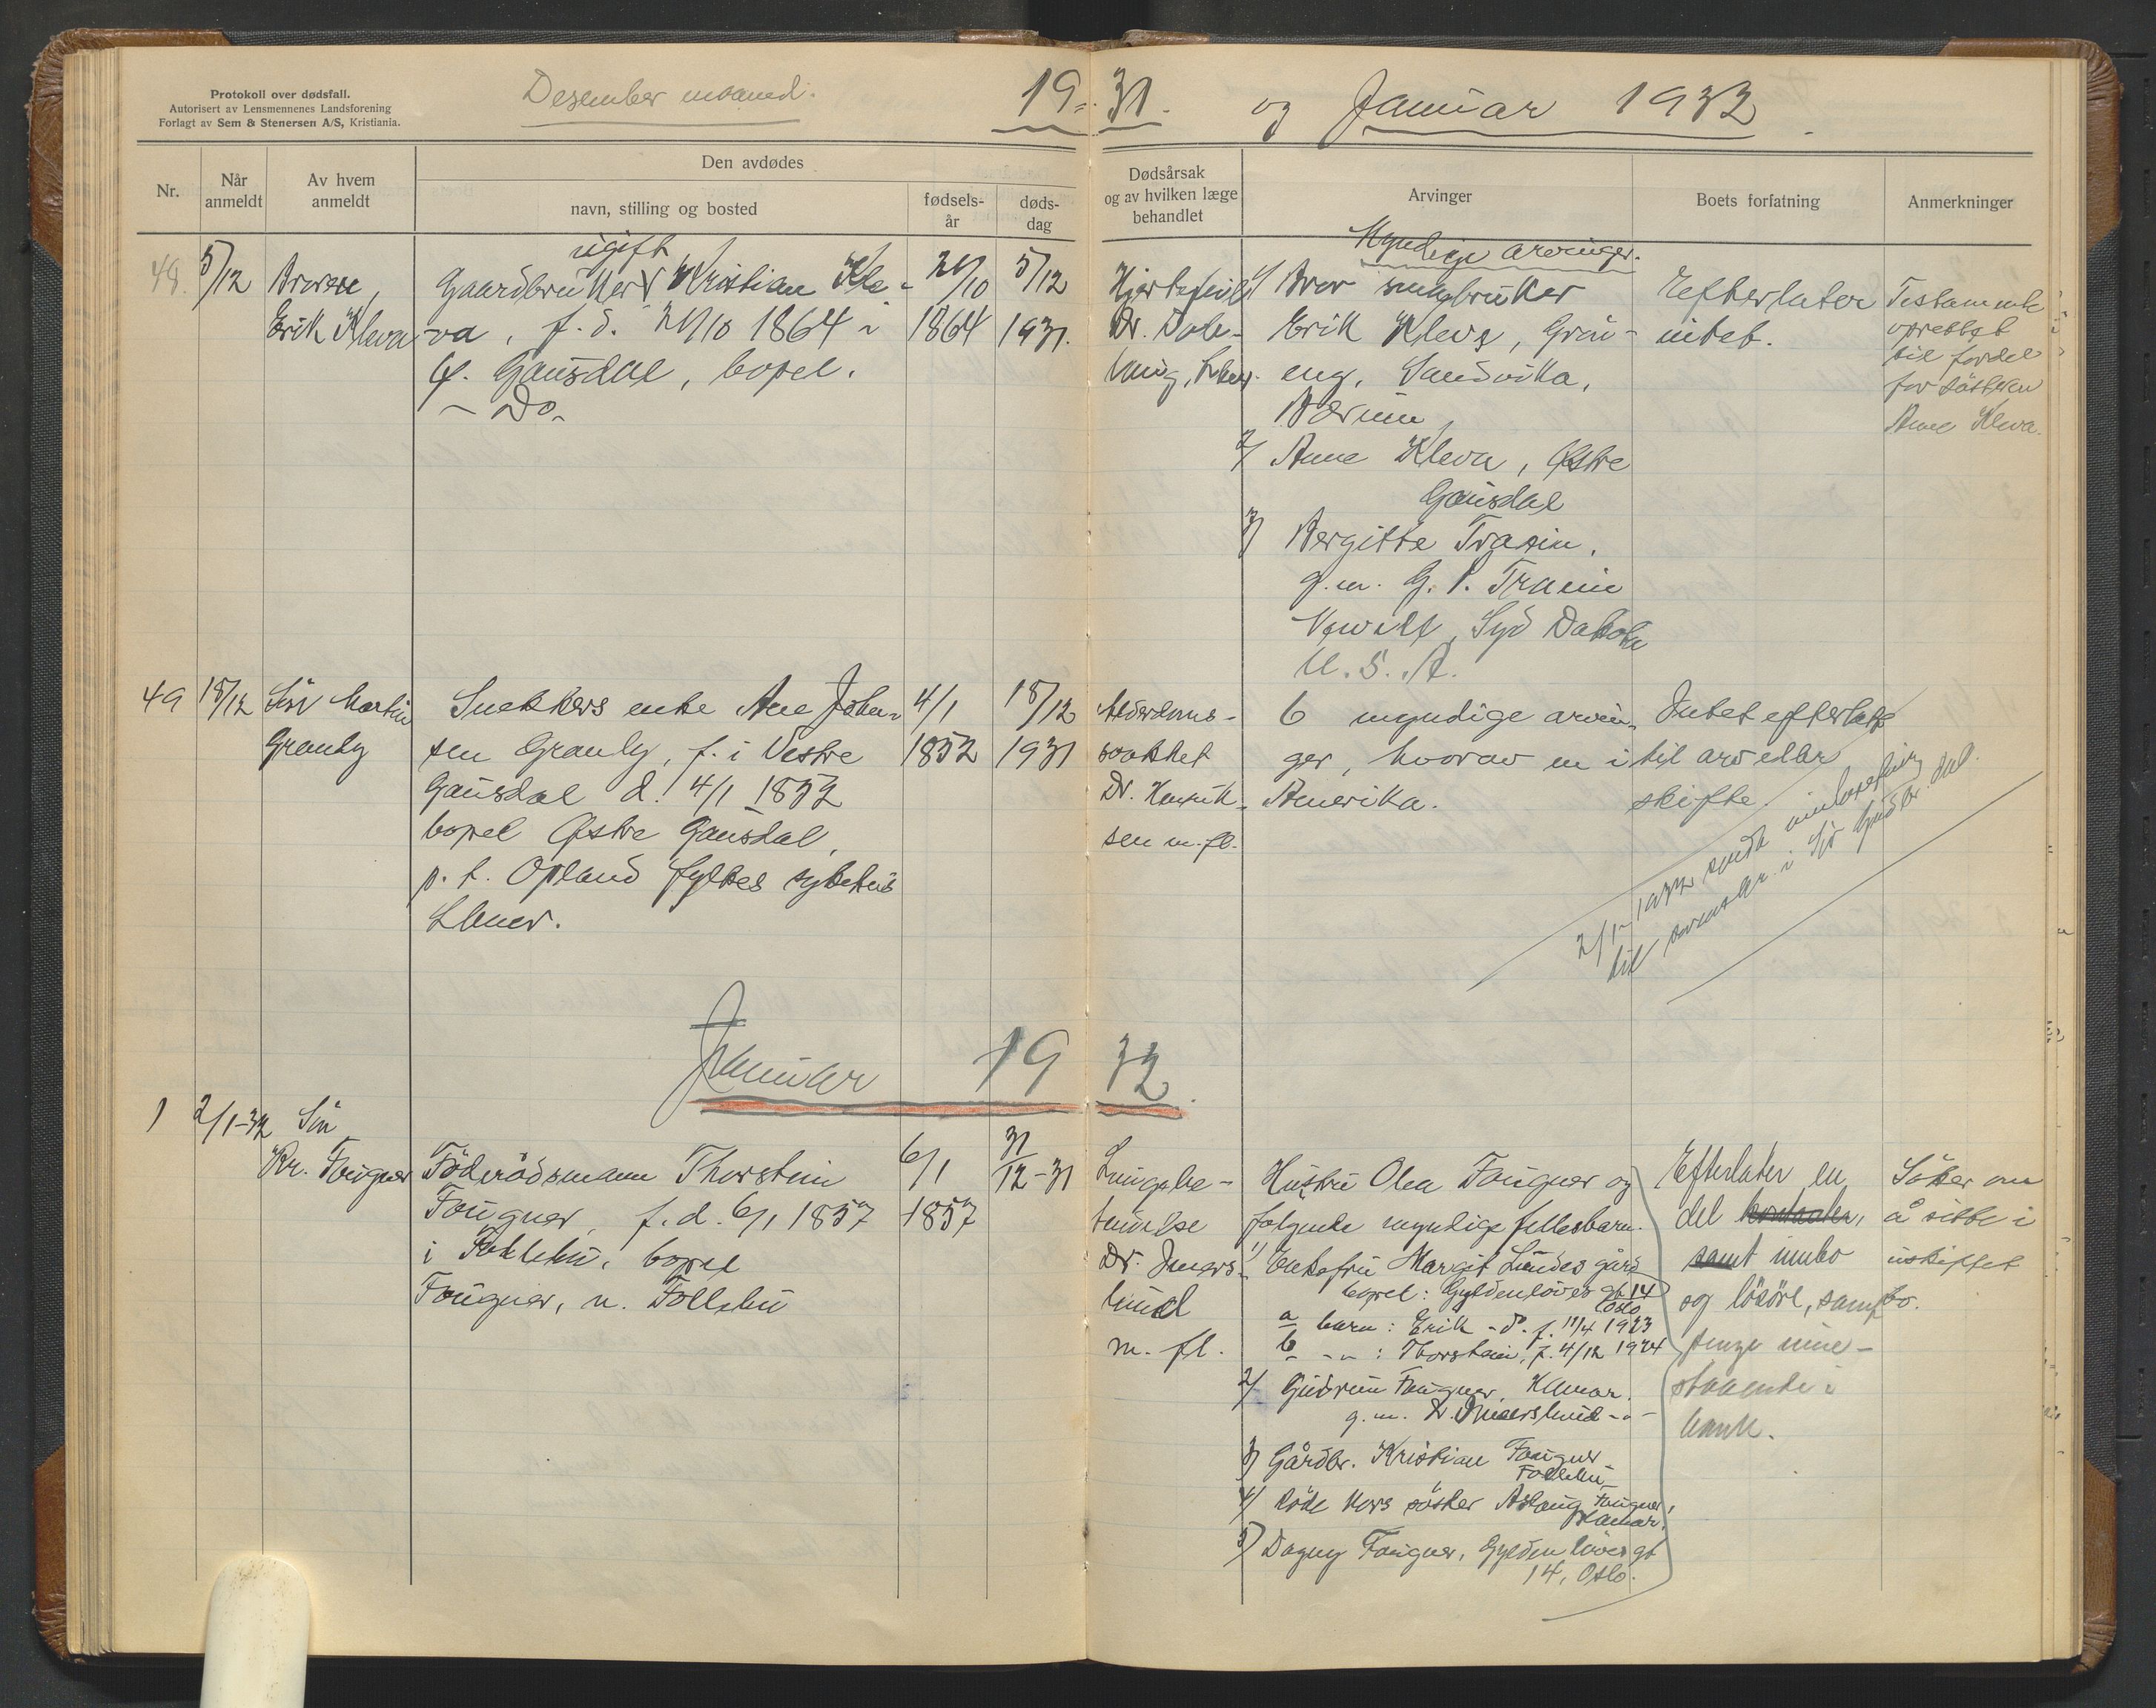 Protokoll over dødsfall.
Autorisert av Lensmennenes Landsforening
Forlagt av Sem & Stenersen A/S, Kristiania.
Desember maaned.
19
31.
og Januar 1932
Nr.
Når anmeldt
Av hvem anmeldt
Den avdødes
navn, stilling og bosted
fødsels-
år
døds-
dag
Dødsårsak
og av hvilken læge
behandlet
Arvinger
Boets forfatning
Anmerkninger
48.
5/12
Broren,
Erik Kleva
ugift
Gaardbruker Kristian Kle-
va, f. d. 24/10 1864 i
Ø. Gausdal, bopel.
- Do -
24/10
1864
5/12
1931.
Hjertefeil
Dr. Dale-
Lhmr.
Myndige arvinger.
1/ Bror småbruker
Erik Kleva,
eng, Sandvika,
Bærum
2/ Anne Kleva, Østre
Gausdal
3/ Bergitte
g.m. G. P.
Syd Dakota
U. S. A.
Efterlater
intet.
Testamente
oprettet
til fordel
for søsteren
Anne Kleva.
49
18/12
Søn Martin
Granly
Snekkers enke Ane Johan-
sen Granly, f. i Vestre
Gausdal d. 4/1 1852
bopel Østre Gausdal,
p. t. Opland fylkes sykehus
Lhmr.
4/1
1852
18/12
1931
Alderdoms-
svakhet
Dr. Henrik-
sen m. fl.
6 myndige arvin-
ger, hvorav en i
Amerika.
Intet efterlatt
til arv eller
skifte.
2/1- 1932 sendt innberetning
til sorenskr. i Syd Gudbr. dal.
Januar 19
32.
1
2/1-32
Søn
Kr. Fougner
Föderådsmann Thorstein
Fougner, f. d. 6/1 1857
i Follebu, bopel
Fougner, n. Follebu
6/1
1857
31/12-31
Lungebe-
tendelse
Dr. Inders-
lund
m. fl.
Hustru Olea Fougner og
følgende myndige fellesbarn.
1/ Enkefru Margit Lundesgård
bopel: Gyldenløves gt 14
Oslo
a barn: Erik - do - f. 11/4 1923
b - " - : Thorstein, f. 4/12 1924
2/ Gudrun Fougner, Hamar.
g. m. Dr. Inderslund - " -
3/ Gårdbr. Kristian Fougner
Follebu
4/ Röde Kors söster Aslaug Fougner,
Hamar.
5/ Dagny Fougner, Gyldenløves gt
14, Oslo.
Efterlater en
del kontanter,
samt innbo
og lösöre, samt
penge inne-
staaende i
bank.
Söker om
å sitte i
uskiftet
bo.